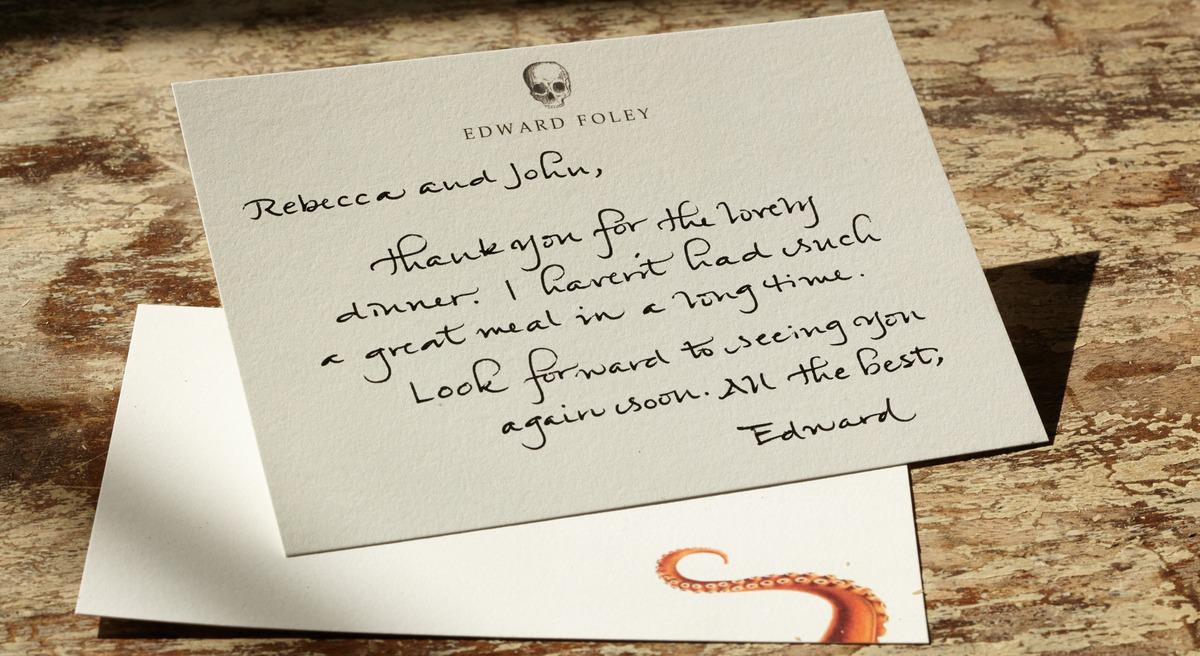 EDWARD FOLEY
Rebecca and John,
thank you for the lovely
dinner. I haven't had such
a great meal in a long time.
Look forward to seeing you
again soon. All the best,
Edward